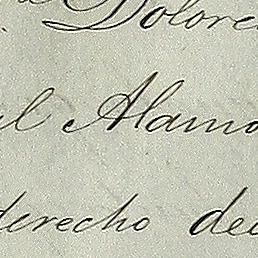 Dolore
al Alamo
derecho de